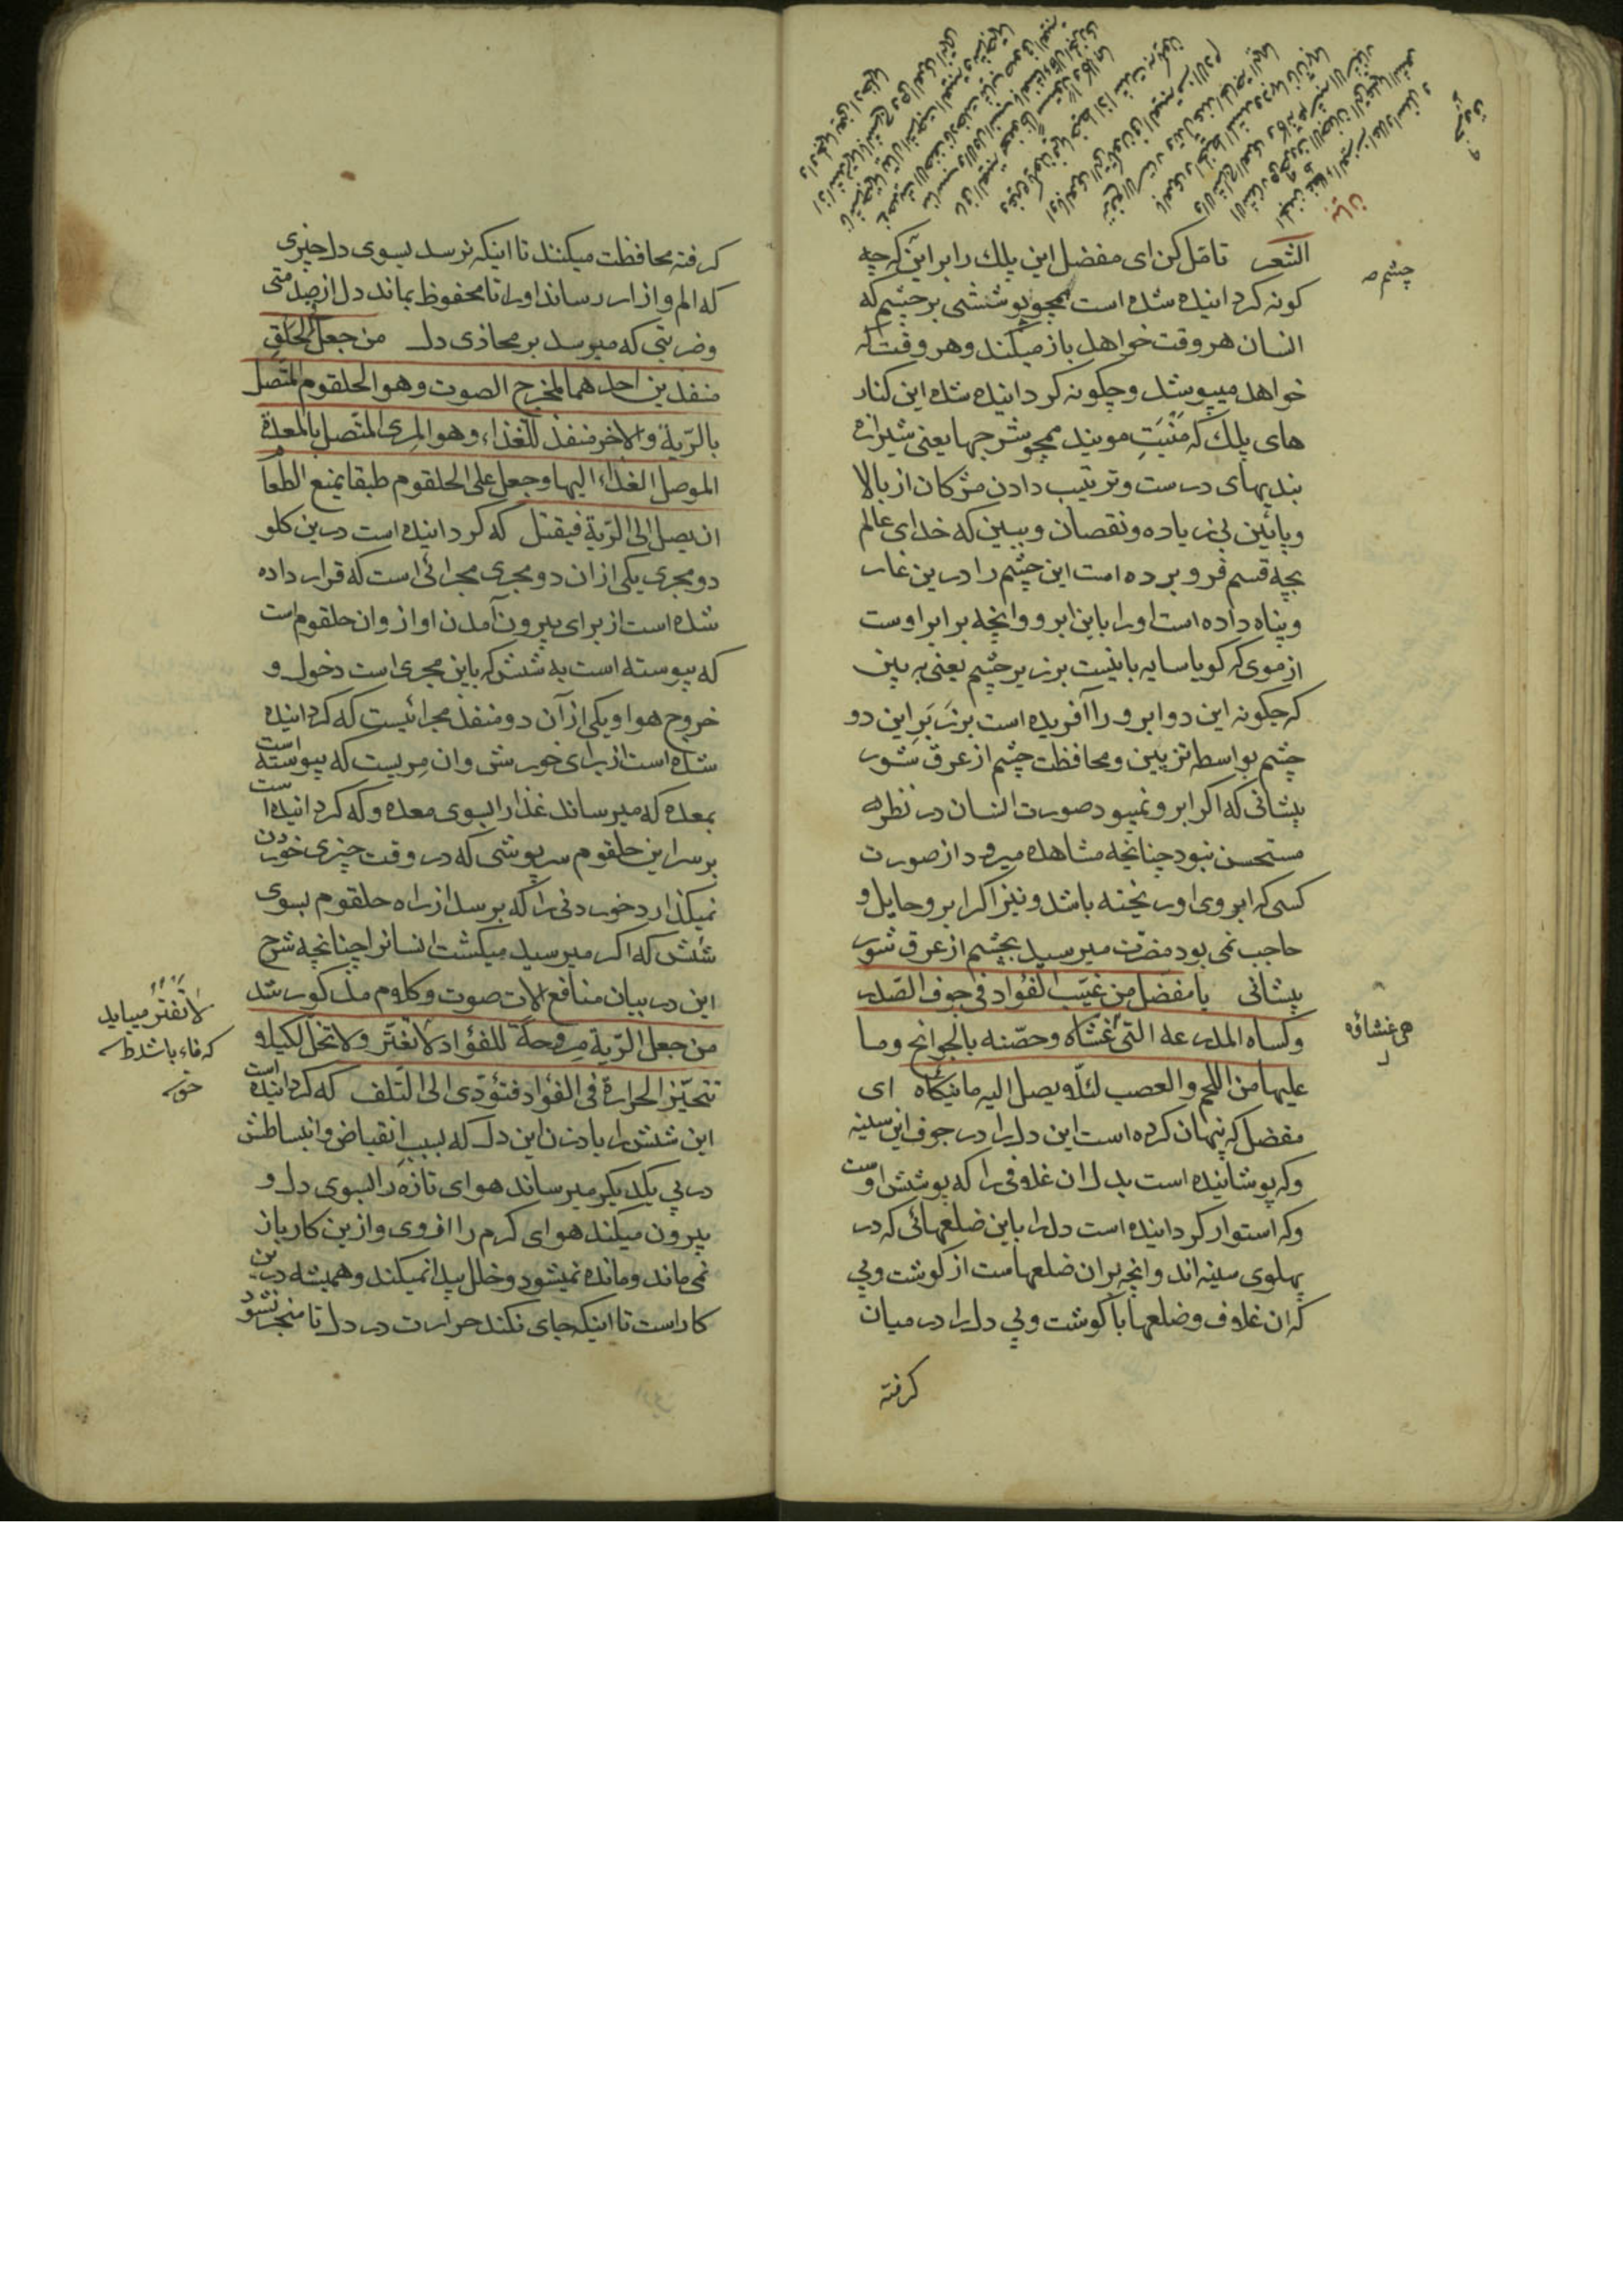 الشعر تامّل کن ای مفضل این پلك را برابر این که چه
کونه کردانیده شده است همچو پوششی بر چشم که
انسان هر وقت خواهد باز میکند و هر وقت که
خواهد میپوشد و چکونه کردانیده شده این کنار
های پلك که مَنْبَتِ مویند همچو شرجها یعنی شیرازه
بندیهای درست و ترتیب دادن مژکان از بالا
و پائین بی زیاده و نقصان و ببین که خدای عالم
بچه قسم فرو برده است این چشم را درین غار
و پناه داده است او را باین ابرو و انچه برابر اوست
از موی که کویا سایه بانیست بر زبر چشم یعنی به بین
که چکونه این دو ابرو را آفریده است بر زَبَرِ این دو
چشم بواسطه تزیین و محافظت چشم از عرق شور
پیشانی که اکر ابرو نمیبود صورت انسان در نظرها
مستحسن نبود چنانچه مشاهده میرود از صورت
کسی که ابروی او ریخته باشد و نیز اکر ابرو حایل و
حاجب نمی بود مضرت میرسید بچشم از عرق شور
پیشانی یا مفضل من غیّب الفؤاد فی جوف الصّدر
و کساه المدرعه التی غشاه و حصّنه بالجوانح وما
علیها من اللحم والعصب لئلّا و یصل الیه ما ینکاه ای
مفضل که پنهان کرده است این دل را در جوف این سینه
و که پوشانیده است بدل ان غلافی را که پوشش اوست
و که استوار کردانیده است دل را باین ضلعهائی که در
پهلوی سینه اند و انچه بر ان ضلعهاست از کوشت و پی
که ان غلاف و ضلعها با کوشت و پی دل را در میان
کرفته
چشم ص
هی غشاؤه
بیان
کرفته محافظت میکنند تا اینکه نرسد بسوی دل چیزی
که الم و ازار رساند او را تا محفوظ بماند دل از صدمتی
و ضربتی که میرسد بر محاذی دل من جعل فی الحلق
منفذین احدهما لمخرج الصوت وهو الحلقوم المتّصل
بالرّیة والاخر منفذ للغذاء وهو المری المتصل بالمعدة
الموصل الغذاء الیها وجعل علی الحلقوم طبقا یمنع الطعا
ان یصل الی الرّیة فیقتل که کردانیده است درین کلو
دو مجری یکی از ان دو مجری مجرائی است که قرار داده
شده است از برای بیرون آمدن اواز و ان حلقوم است
که پیوسته است به شش که باین مجری است دخول و
خروج هوا و یکی از آن دو منفذ مجرائیست که کردانیده
شده است از برای خورش و ان مریست که پیوسته است
بمعده که میرساند غذا را بسوی معده و که کردانیده است
بر سر این حلقوم سرپوشی که در وقت چیزی خوردن
نمیکذارد خوردنی را که برسد از راه حلقوم بسوی
شش که اکر میرسید میکشت انسانرا چنانچه شرح
این در بیان منافع الات صوت و کلام مذکور شد
من جعل الرّیة مروحة للفؤاد لا تفتّر ولا تخلّ لکیلا و
تتحیّز الحرارة فی الفؤاد فتؤدّی الی التّلف که کردانیده است
این شش را بادزن این دل که بسبب انقباض و انبساطش
در پی یکدیکر میرساند هوای تازه را بسوی دل و
بیرون میکند هوای کرم را از وی و ازین کار باز
نمی ماند و مانده نمیشود و خلل پیدا نمیکند و همیشه درین
کار است تا اینکه جای نکند حرارت در دل تا منجر نشود
لا تفتر میباید
که فاء باشد